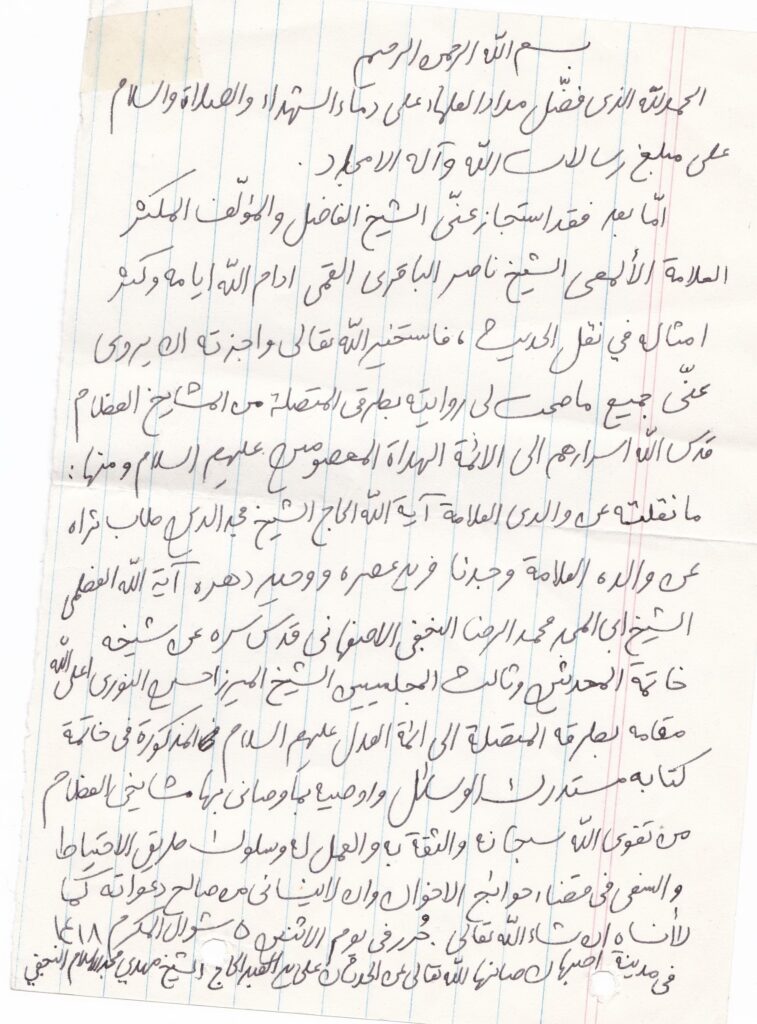 بسم الله الرحمن الرحيم
الحمد لله الذى فضّل مداد العلماء على دماء الشهداء والصلاة والسلام
على مبلغ رسالات الله وآله الامجاد .
امّا بعد فقد استجاز عنّى الشيخ الفاضل والمؤلّف المكثر
العلامة الألمعى الشيخ ناصر الباقرى القمى ادام الله ايامه وكثر
امثاله في نقل الحديث ، فاستخير الله تعالى واجزته ان يروى
عنّى جميع ما صحت لى روايته بطرقى المتصلة من المشايخ العظام
قدس الله اسرارهم الى الائمة الهداة المعصومين عليهم السلام ومنها :
ما نقلته عن والدى العلامة آية الله الحاج الشيخ مجد الدين طاب ثراه
عن والده العلامة وجدنا فريد عصره ووحيد دهره آية الله العظمى
الشيخ ابى المجد محمد الرضا النجفى الاصفهانى قدس سره عن شيخه
خاتمة المحدثين وثالث المجلسيين الشيخ الميرزا حسين النورى اعلى الله
مقامه بطرقه المتصلة الى ائمة العدل عليهم السلام المذكورة فى خاتمة
كتابه مستدرك الوسائل واوصيه بما وصانى بها مشايخى العظام
من تقوى الله سبحانه والثقة به والعمل له وسلوك طريق الاحتياط
والسعى فى قضاء حوائج الاخوان وان لاينسانى من صالح دعواته كما
لأنساه ان شاء الله تعالى . حُرر فى يوم الاثنين ٥ شوال المكرم ١٤١٨
فى مدينة اصبهان صانها الله تعالى عن الحدثان على يد العبد الحاج الشيخ مهدي مجد الاسلام النجفي